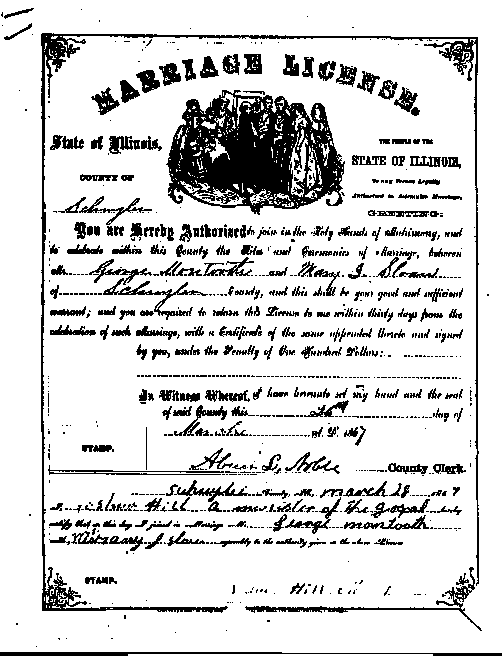 MARRIAGE LICENSE.
State of Illinois,
COUNTY OF
Schuyler
THE PEOPLE OF THE
STATE OF ILLINOIS,
To any Person Legally
Authorized to Solemnize Marriage,
GREETING:
You are Hereby Authorized to join in the Holy Bands of Matrimony, and
to celebrate within this County the Rites and Ceremonies of Marriage, between
Mr. George Montooth and Mary J. Sloan
of Schuyler County, and this shall be your good and sufficient
warrant; and you are required to return this License to me within thirty days from the
celebration of such Marriage, with a Certificate of the same appended thereto and signed
by you, under the Penalty of One Hundred Dollars:
In Witness Whereof, I have hereunto set my hand and the seal
of said County this day of
March A. D. 1867
STAMP.
Noble County Clerk.
Schuyler County, Ill. march 28 1867
I, Hill A minister of the gospal hereby
certify that on this day I joined in Marriage Mr. George montooth
and J. Sloan agreeably to the authority given in the above License
STAMP.
Hill